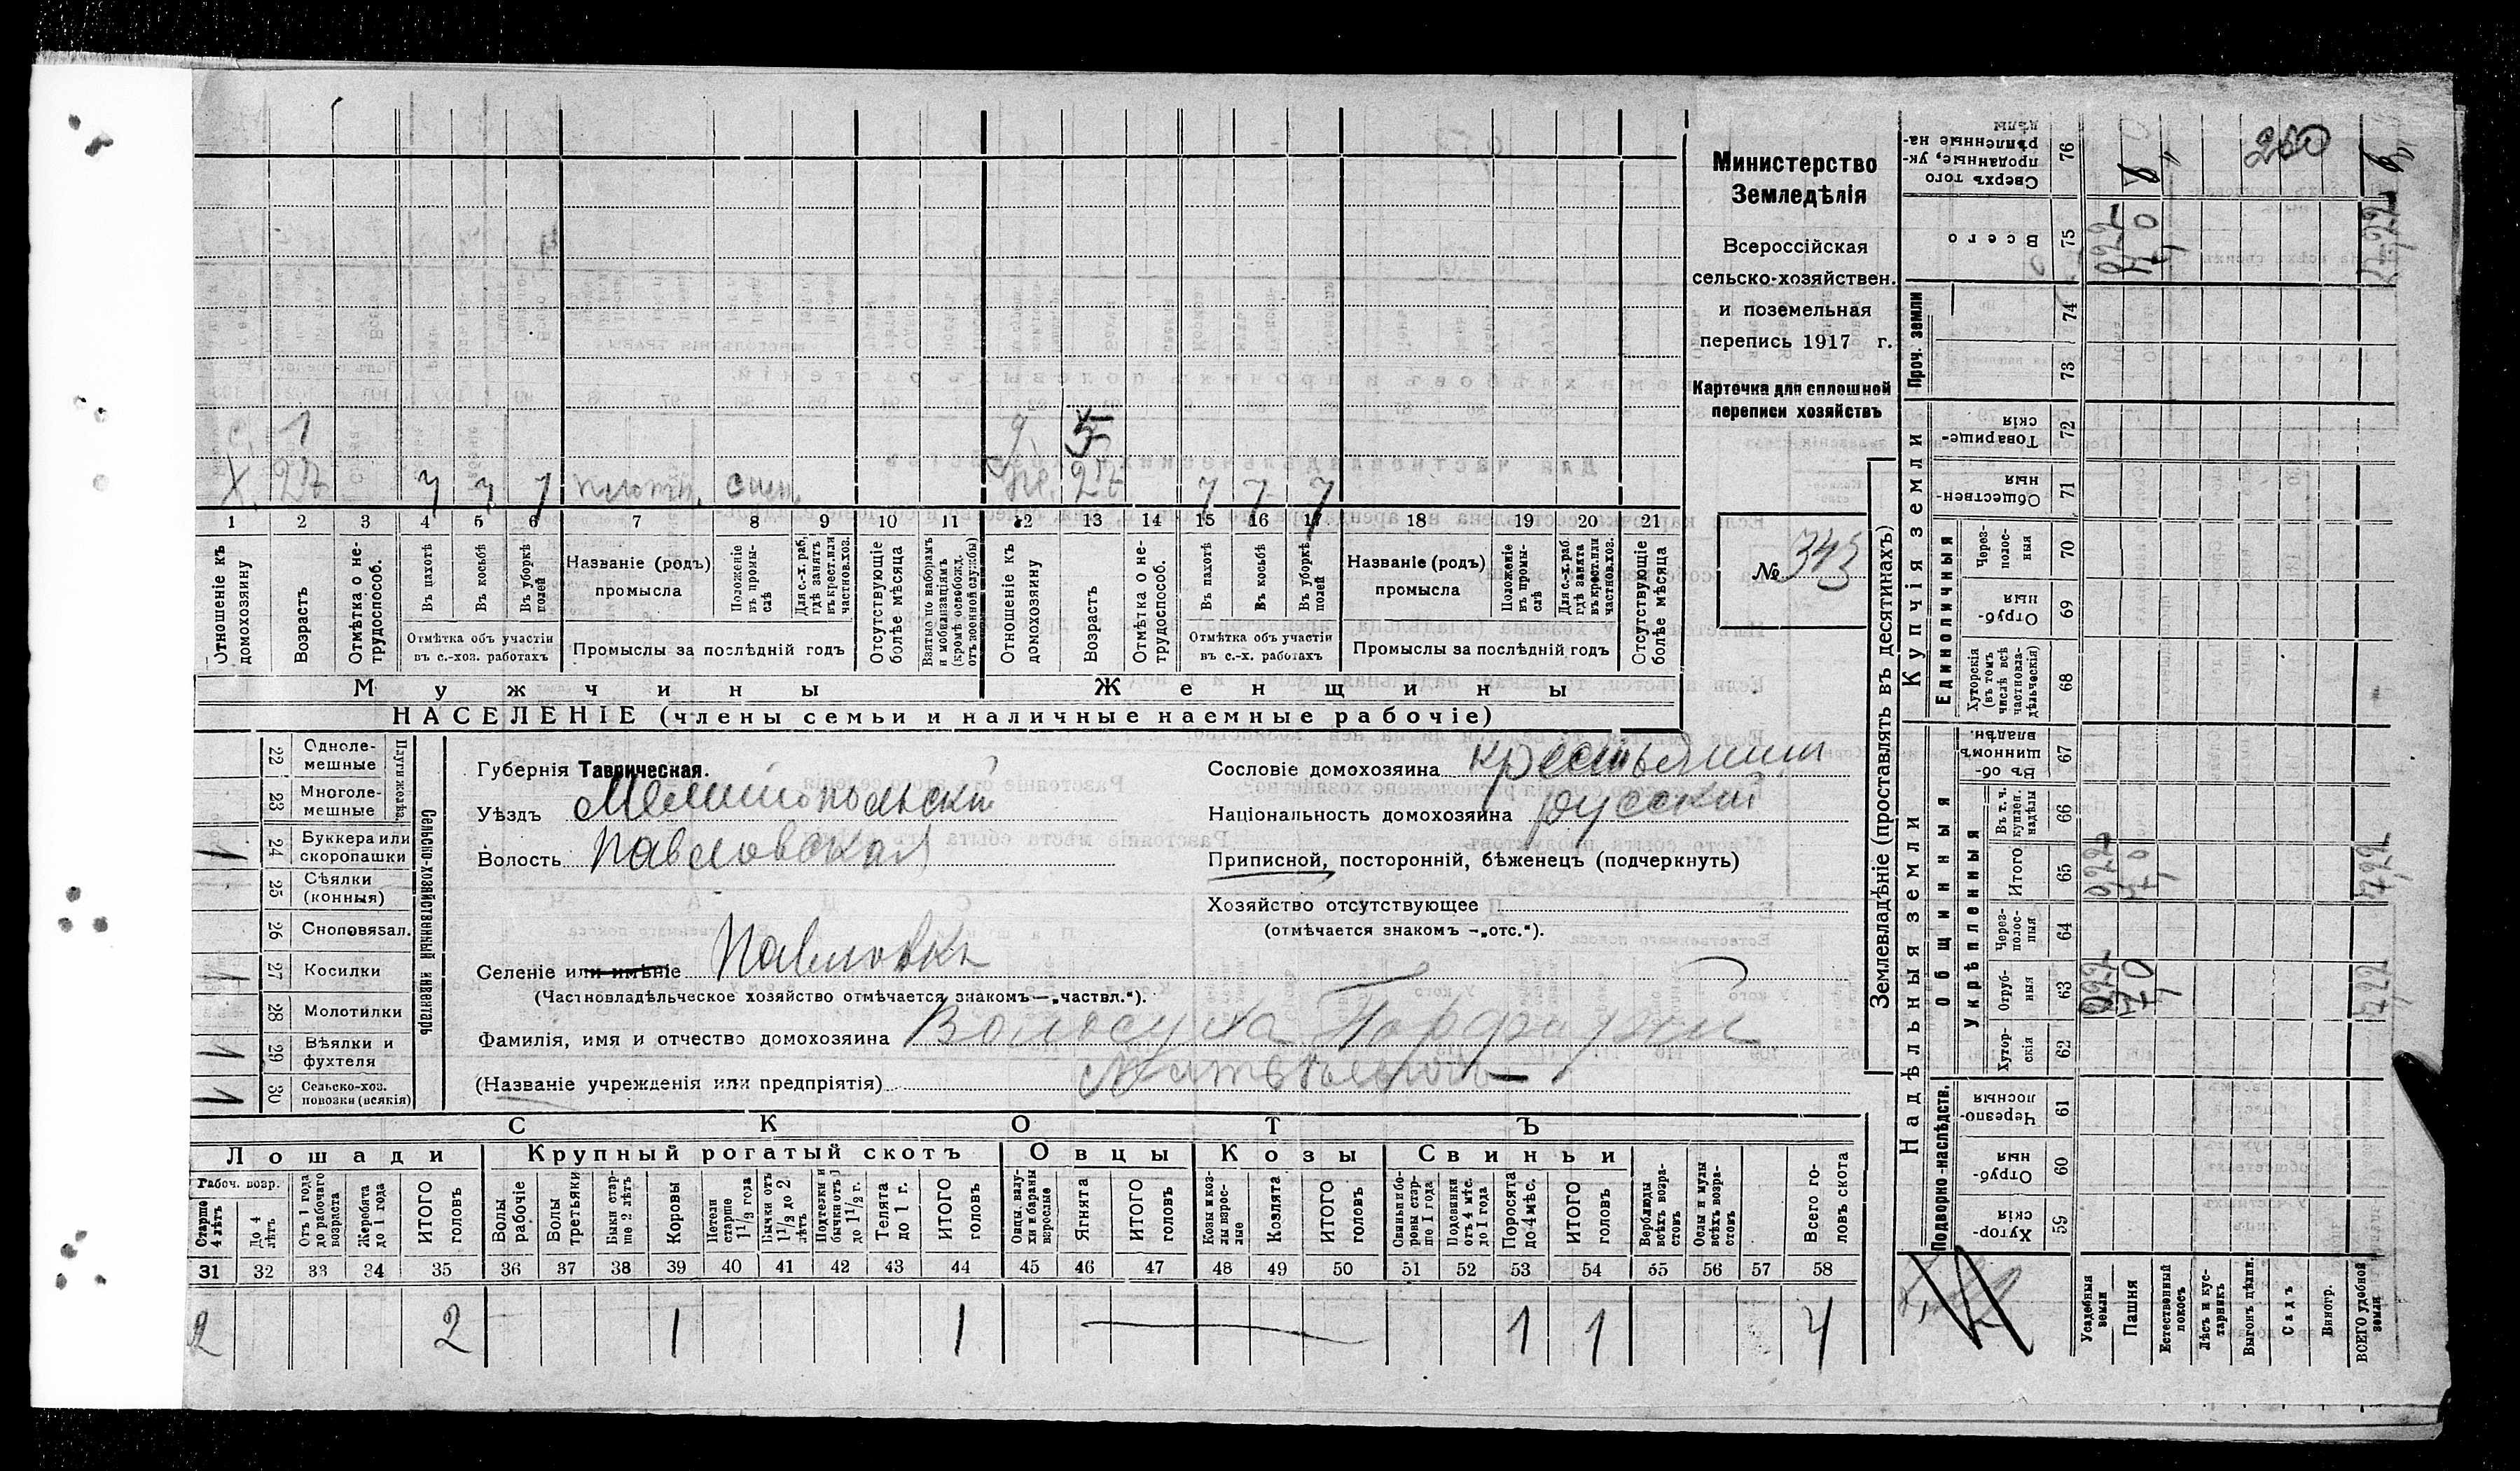 Министерство
Земледѣлія
Всероссійская
сельско-хозяйствен.
и поземельная
перепись 1917 г.
Карточка для сплошной
переписи хозяйствъ
№ 343
с. 1
д. 5
х. 27 7 7 7 плотн.
27 7 7 7
1 2 3 4 5 6 7 8 9 10 11 12 13 14 15 16 17 18 19 20 21
Отношеніе къ домохозяину
Возрастъ
Отмѣтка о не-трудоспособ.
Въ пахотѣ
Въ косьбѣ
Въ уборкѣ полей
Отмѣтка объ участіи въ с.-хоз. работахъ
Названіе (родъ) промысла
Положеніе въ промы-слѣ
Для с.-х. раб. гдѣ занятъ въ крест. или частнов. хоз.
Промыслы за послѣдній годъ
Отсутствующіе болѣе мѣсяца
Взятые по наборамъ и мобилизаціямъ (кромѣ освобожд. отъ военной службы)
Отношеніе къ домохозяину
Возрастъ
Отмѣтка о не-трудоспособ.
Въ пахотѣ
Въ косьбѣ
Въ уборкѣ полей
Отмѣтка объ участіи въ с.-х. работахъ
Названіе (родъ) промысла
Положеніе въ промы-слѣ
Для с.-х. раб. гдѣ занята въ крест. или частнов. хоз.
Промыслы за послѣдній годъ
Отсутствующіе болѣе мѣсяца
Мужчины
Женщины
НАСЕЛЕНІЕ (члены семьи и наличные наемные рабочіе)
Сельско-хозяйственный инвентарь
Плуги желѣз.
22 Одноле-мешные
23 Многоле-мешные
1 24 Буккера или скоропашки
25 Сѣялки (конныя)
26 Сноповязал.
1 27 Косилки
28 Молотилки
1 29 Вѣялки и фухтеля
1 30 Сельско-хоз. повозки (всякія)
Губернія Таврическая.
Уѣздъ Мелитопольскій
Волость Павловская
Селеніе или имѣніе Павловка
(Частновладѣльческое хозяйство отмѣчается знакомъ—„частвл.“).
Фамилія, имя и отчество домохозяина Волосуха Порфирій
(Названіе учрежденія или предпріятія) Матвѣевичъ
Сословіе домохозяина крестьянин
Національность домохозяина русскій
Приписной, посторонній, бѣженецъ (подчеркнуть)
Хозяйство отсутствующее
(отмѣчается знакомъ —„отс.“).
СКОТЪ
Лошади
Крупный рогатый скотъ
Овцы
Козы
Свиньи
Рабоч. возр.
Старше 4 лѣтъ
До 4 лѣтъ
Отъ 1 года до рабочаго возраста
Жеребята до 1 года
ИТОГО головъ
Волы рабочіе
Волы третьяки
Быки стар-ше 2 лѣтъ
Коровы
Нетели старше 1 1/2 года
Бычки отъ 1 1/2 до 2 лѣтъ
Подтелки и бычки отъ 1 до 1 1/2 г.
Телята до 1 г.
ИТОГО головъ
Овцы, валу-хи и бараны взрослые
Ягнята
ИТОГО головъ
Козы и коз-лы взрос-лые
Козлята
ИТОГО головъ
Свиньи и бо-ровы стар-ше 1 года
Подсвинки отъ 4 мѣс. до 1 года
Поросята до 4 мѣс.
ИТОГО головъ
Верблюды всѣхъ возра-стовъ
Ослы и мулы всѣхъ возра-стовъ
Всего го-ловъ скота
31 32 33 34 35 36 37 38 39 40 41 42 43 44 45 46 47 48 49 50 51 52 53 54 55 56 57 58
2 2 1 1 1 1 4
Землевладѣніе (проставлять въ десятинахъ)
Надѣльныя земли
Купчія земли
Проч. земли
Подворно-наслѣдств.
Общинныя
Укрѣпленныя
Единоличныя
Сверхъ того проданные, ук-рѣпленные на-дѣлы 76
Всего 75
74
73
Товарище-скія 72
Обществен-ныя 71
Через-полос-ныя 70
Отруб-ныя 69
Хуторскія (въ томъ числѣ всѣ частновла-дѣльческія) 68
Въ об-щинномъ владѣн. 67
Въ т. ч. куплен. надѣлы 66
Итого 65
Через-полос-ныя 64
Отруб-ныя 63
Хутор-скія 62
Черезпо-лосныя 61
Отруб-ныя 60
Хутор-скія 59
Усадебныя земли
Пашня
Естественный покосъ
Лѣсъ и кус-тарникъ
Выгонъ цѣлин.
Садъ
Виногр.
ВСЕГО удобной земли
260